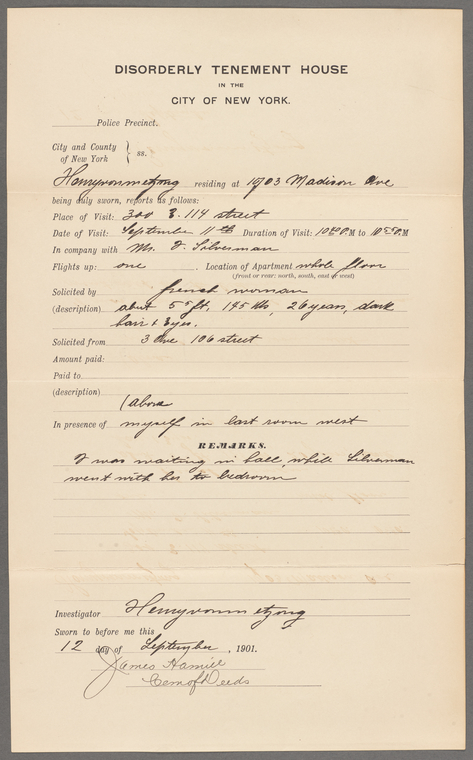 DISORDERLY TENEMENT HOUSE
IN THE
CITY OF NEW YORK.
Police Precinct.
City and County
of New York } ss.
Henry von residing at 1703 Madison Ave
being duly sworn, reports as follows:
Place of Visit: 300 E. 114 street
Date of Visit: September 11th Duration of Visit: M to M
In company with Mr. J. Silverman
Flights up: one Location of Apartment whole floor
(front or rear; north, south, east or west)
Solicited by french woman
(description) about 5 ft, 145 lbs, 26 years, dark
hair & Eyes.
Solicited from 3 Ave 106 street
Amount paid:
Paid to
(description)
(above
In presence of myself in last room west
REMARKS.
I was waiting in hall, while Silverman
went with her to bedroom
Investigator Henry von
Sworn to before me this
12 day of September, 1901.
James Hamill
Com of Deeds